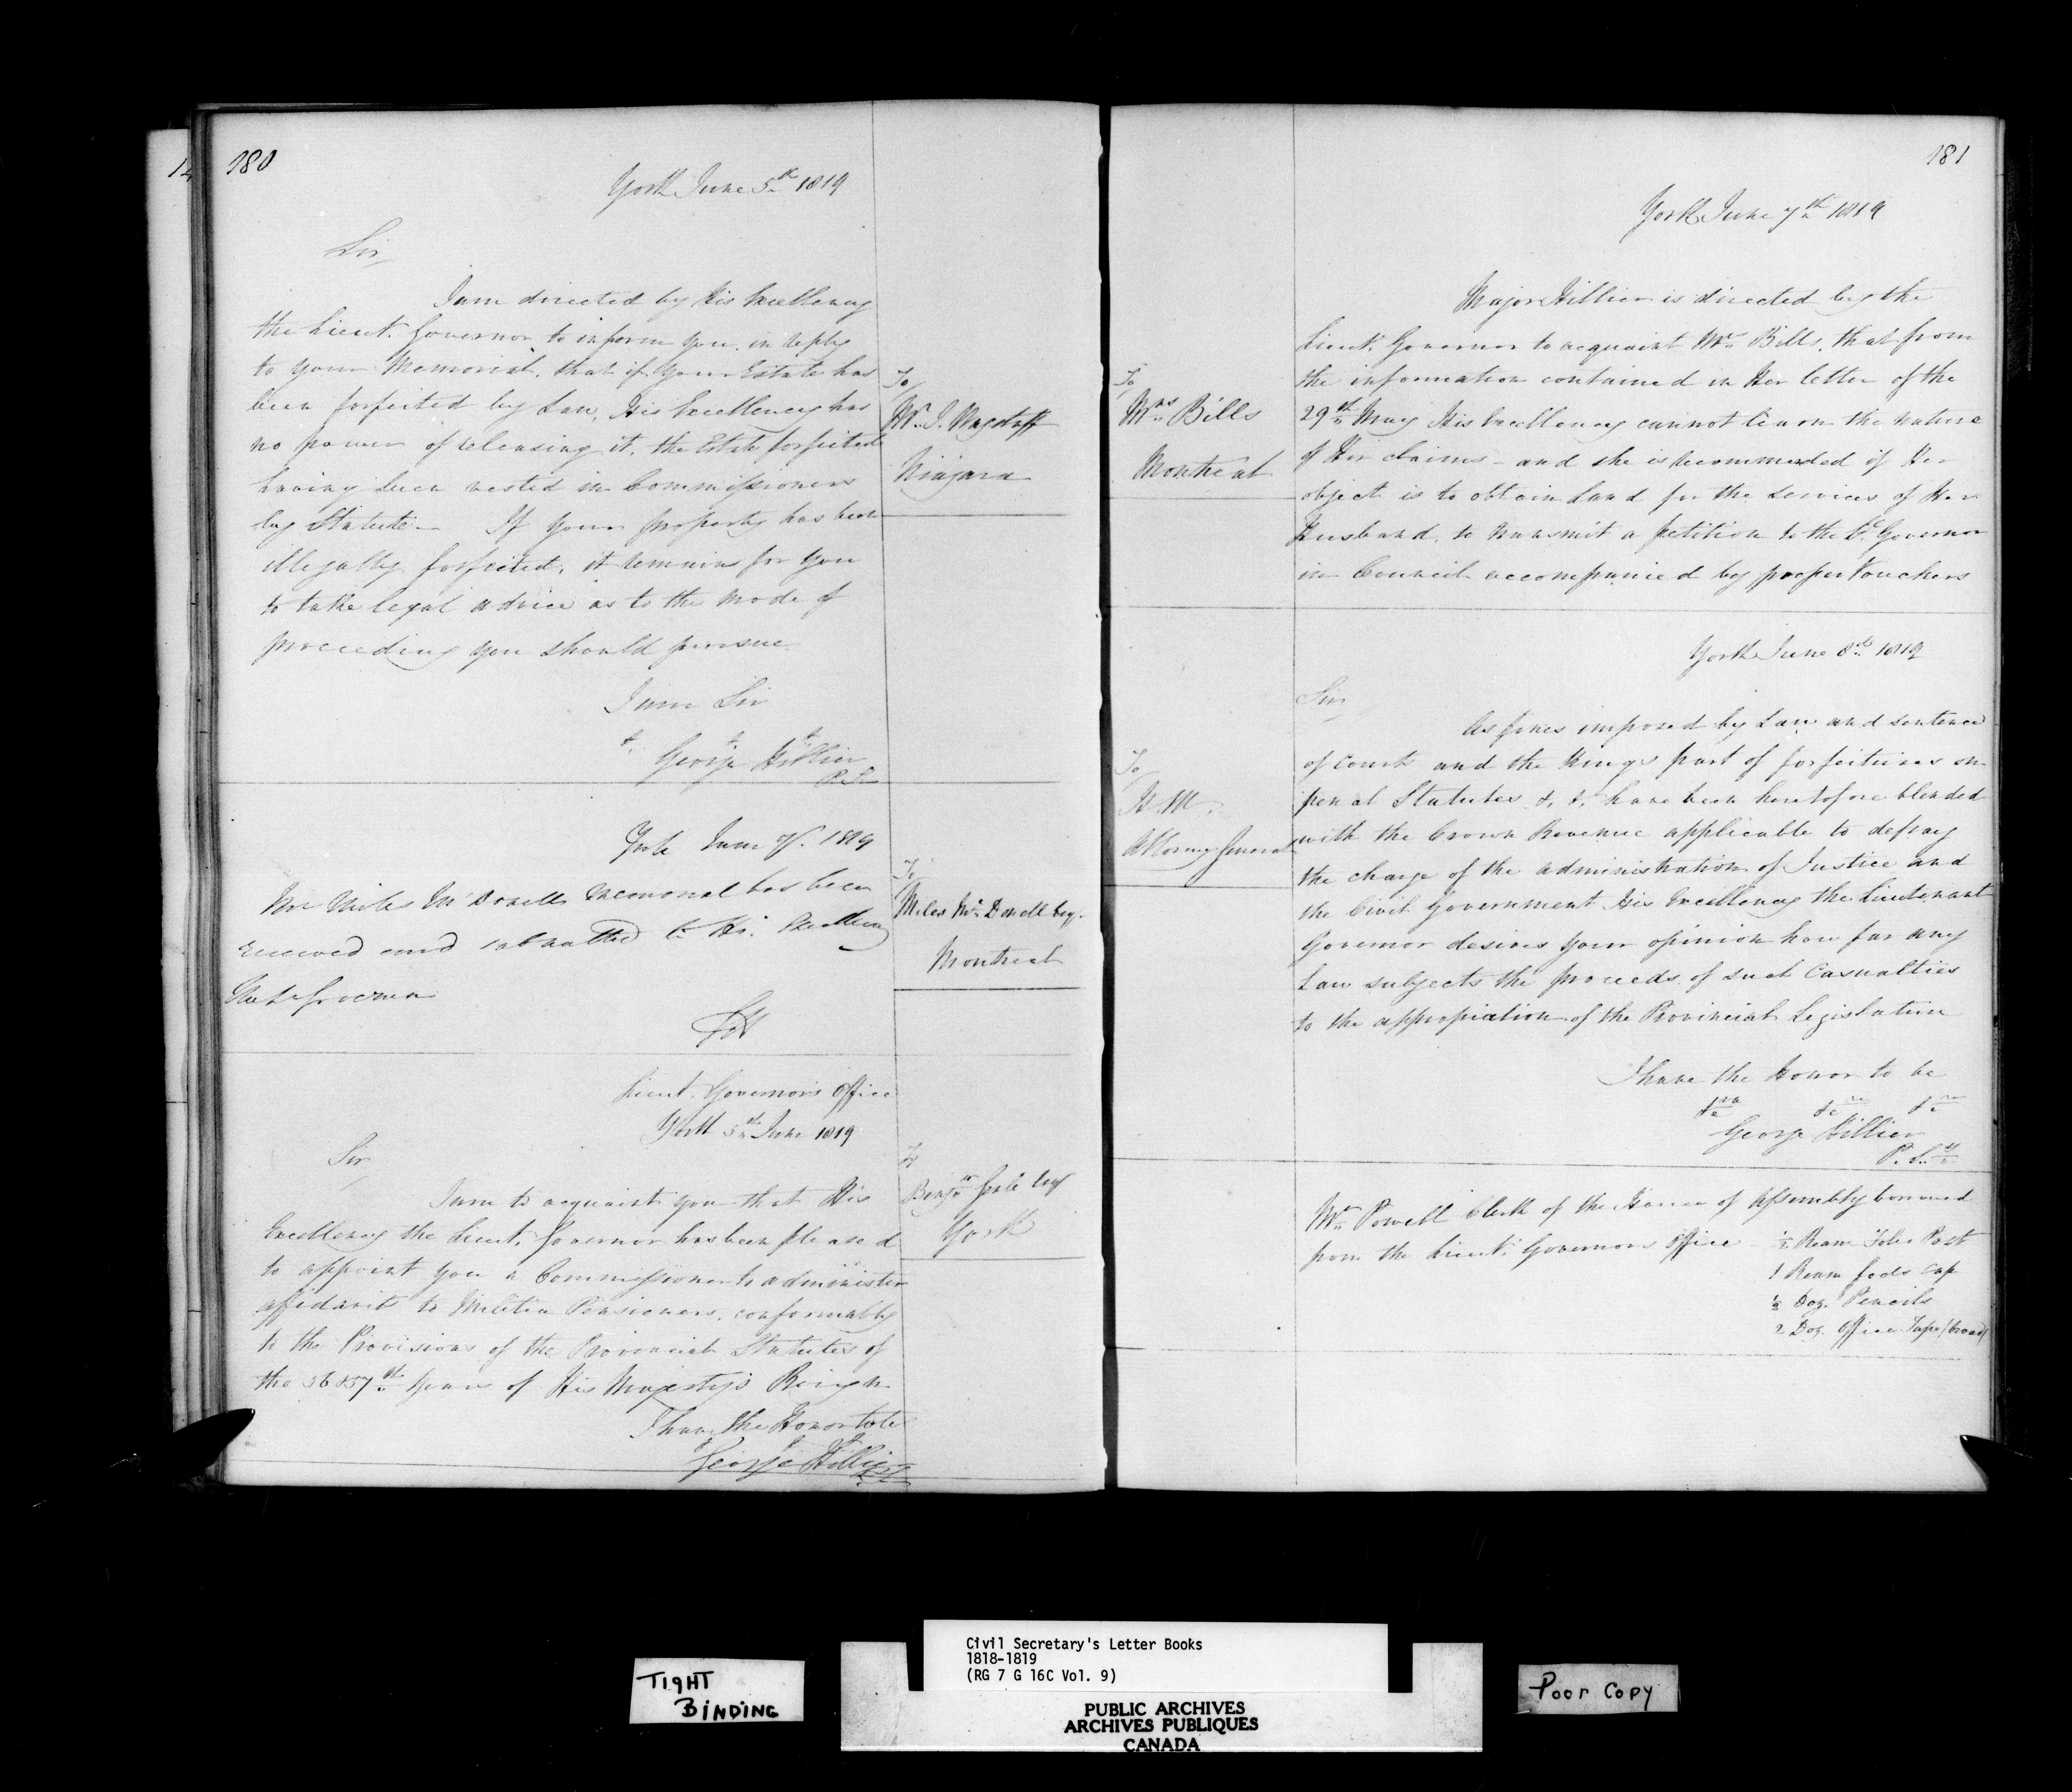 180
York June 5th 1819
Sir
I am directed by His Excellency
the Lieut. Governor to inform you in reply
to your Memorial, that if your Estate has
been forfeited by Law, His Excellency has
no power of releasing it, the Estate forfeited
having been vested in Commissioners
by Statute. If your property has been
illegally forfeited, it remains for you
to take legal advice as to the mode of
proceeding you should pursue.
I am Sir
&c &c &c
George Hillier
P. S.
To
Mr. J. Wagstaff
Niagara
York June 7. 1819
Mr Miles McDonell's Memorial has been
received and submitted to His Excellency
the Lt Governor
GH
To
Miles McDonell Esqr.
Montreal
Lieut. Governor's Office
York 5th June 1819
Sir
I am to acquaint you that His
Excellency the Lieut. Governor has been pleased
to appoint you a Commissioner to administer
affidavits to Militia Pensioners, conformably
to the Provisions of the Provincial Statutes of
the 56 & 57th years of His Majesty's Reign
I have the Honor to be
George Hillier
To
Benjn Gale Esq
York
181
York June 7th 1819
Major Hillier is directed by the
Lieut. Governor to acquaint Mrs Bills, that from
the information contained in Her letter of the
29th May His Excellency cannot learn the nature
of Her claims - and she is recommended if Her
object is to obtain Land for the services of Her
Husband, to transmit a petition to the Lt Governor
in Council accompanied by proper Vouchers
To
Mrs Bills
Montreal
York June 8th 1819
Sir
As fines imposed by Law and sentence
of Courts and the Kings part of forfeitures on
penal Statutes &. &. have been heretofore blended
with the Crown Revenue applicable to defray
the charge of the administration of Justice and
the Civil Government His Excellency the Lieutenant
Governor desires your opinion how far any
Law subjects the proceeds of such Casualties
to the appropiation of the Provincial Legislature
I have the Honor to be
&ca &ca &ca
George Hillier
P. Secy
To
H. M.
Attorney General
Mr Powell Clerk of the House of Assembly borrowed
from the Lieut. Governors Office - ½ Ream Folio Post
1 Ream fools cap
½ Doz. Pencils
2 Doz. Office Tape (broad)
TIGHT
BINDING
Civil Secretary's Letter Books
1818-1819
(RG 7 G 16C Vol. 9)
PUBLIC ARCHIVES
ARCHIVES PUBLIQUES
CANADA
Poor Copy